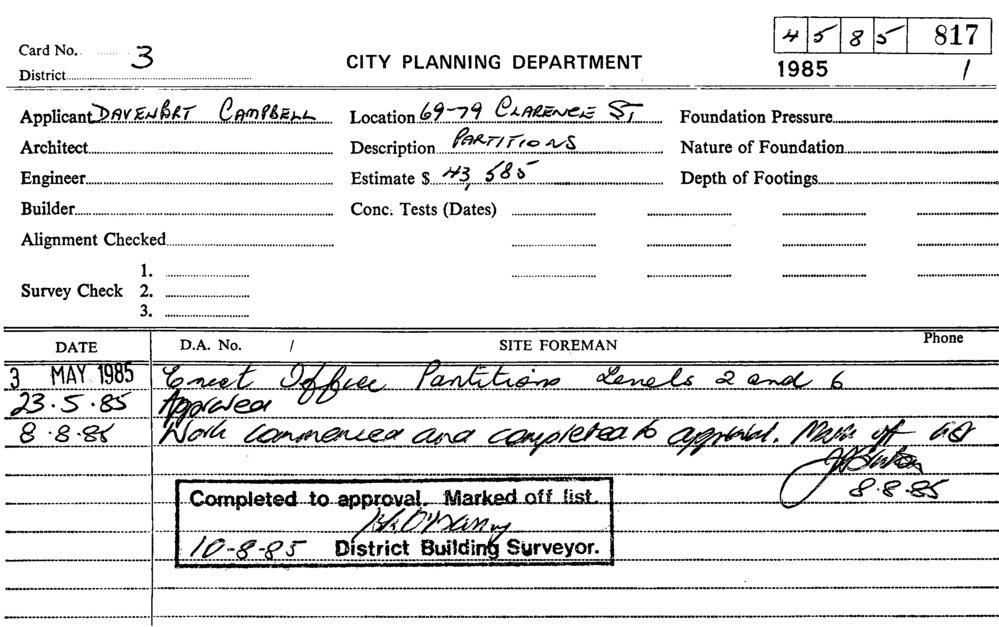 45 85 817
Card No. 3
CITY PLANNING DEPARTMENT
1985 /
District
Applicant DAVENPORT CAMPBELL Location 69-79 CLARENCE ST, Foundation Pressure
Architect Description PARTITIONS Nature of Foundation
Engineer Estimate $ 43,585 Depth of Footings
Builder Conc. Tests (Dates)
Alignment Checked
1.
Survey Check 2.
3.
DATE D.A. No. / SITE FOREMAN Phone
3 MAY 1985 Erect Office Partitions Levels 2 and 6
23.5.85 Approved
8.8.85 Work commenced and completed to approval. Mark off
8.8.85
Completed to approval. Marked off list.
10-8-85 District Building Surveyor.